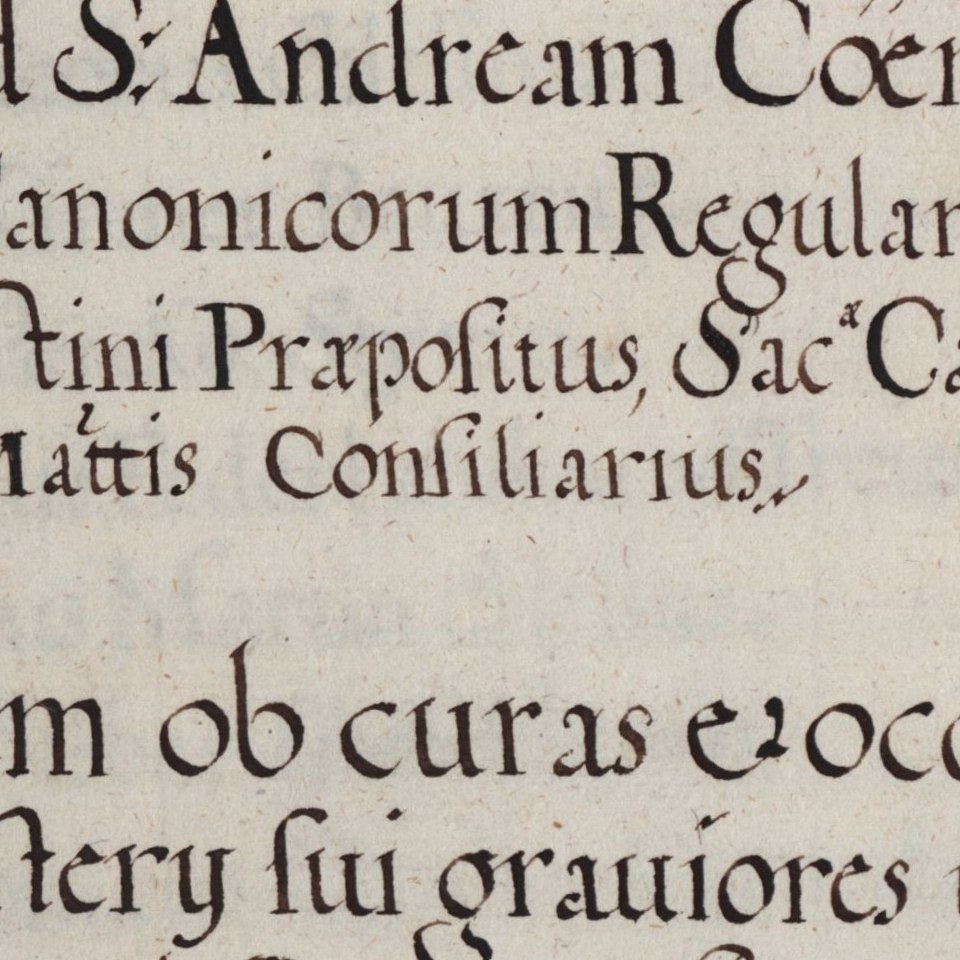 d S: Andream Cœn
anonicorum Regular
ſtini Præpoſitus, Sacᵃᵉ Ca
Mattis Conſiliarius,
m ob curas & occ
ſterÿ ſui grauiores